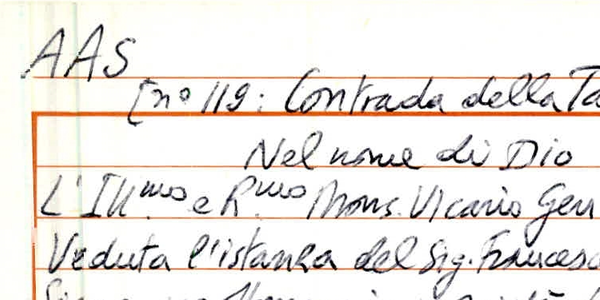 AAS
[n° 119: Contrada della Ta
Nel nome di Dio
L'Ill.mo e R.mo Mons. Vicario Gen
Veduta l'istanza del Sig. Francesc